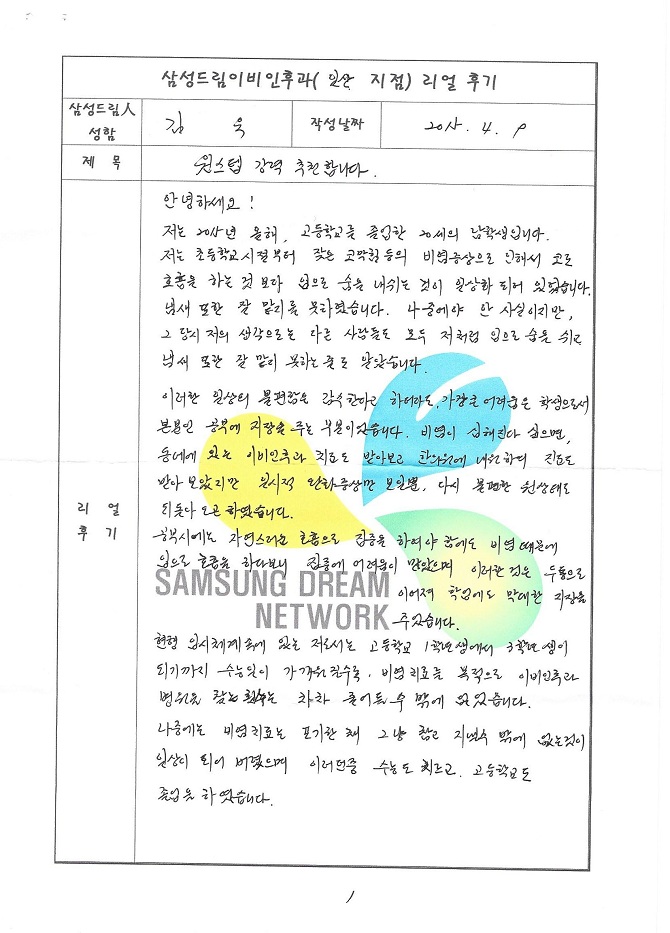 삼성드림이비인후과( 일산 지점) 리얼 후기
삼성드림人 성함
김 욱
작성날짜
2015. 4. 9
제 목
원스텝 강력 추천합니다.
리 얼
후 기
안녕하세요!
저는 2015년 올해, 고등학교를 졸업한 20세의 남학생입니다.
저는 초등학교시절부터 잦은 코막힘등의 비염증상으로 인해서 코로
호흡을 하는 것 보다 입으로 숨을 내쉬는 것이 일상화 되어 있었습니다.
냄새 또한 잘 맡지를 못하였습니다. 나중에야 안 사실이지만,
그 당시 저의 생각으로는 다른 사람들도 모두 저처럼 입으로 숨을 쉬고
냄새 또한 잘 맡지 못하는 줄로 알았습니다.
이러한 일상의 불편함은 감수한다고 하더라도, 가장큰 어려움은 학생으로서
본분인 공부에 지장을 주는 부분이었습니다. 비염이 심해진다 싶으면,
동네에 있는 이비인후과 치료도 받아보고 한의원에 내원하여 진료도
받아 보았지만 일시적 완화증상만 보일뿐, 다시 불편한 원상태로
되돌아 오곤 하였습니다.
공부시에는 자연스러운 호흡으로 집중을 하여야 함에도 비염때문에
입으로 호흡을 하다보니 집중에 어려움이 많았으며 이러한 것은 두통으로
이어져 학업에도 막대한 지장을
주었습니다.
SAMSUNG DREAM
NETWORK
현행 입시체계 속에 있는 저로서는 고등학교 1학년생에서 3학년생이
되기까지 수능일이 가까워질수록, 비염치료를 목적으로 이비인후과
병원을 찾는 횟수는 차차 줄어들 수 밖에 없었습니다.
나중에는 비염치료는 포기한 채 그냥 참고 지낼수 밖에 없는것이
일상이 되어 버렸으며 이러던중 수능도 치르고, 고등학교도
졸업을 하였습니다.
1